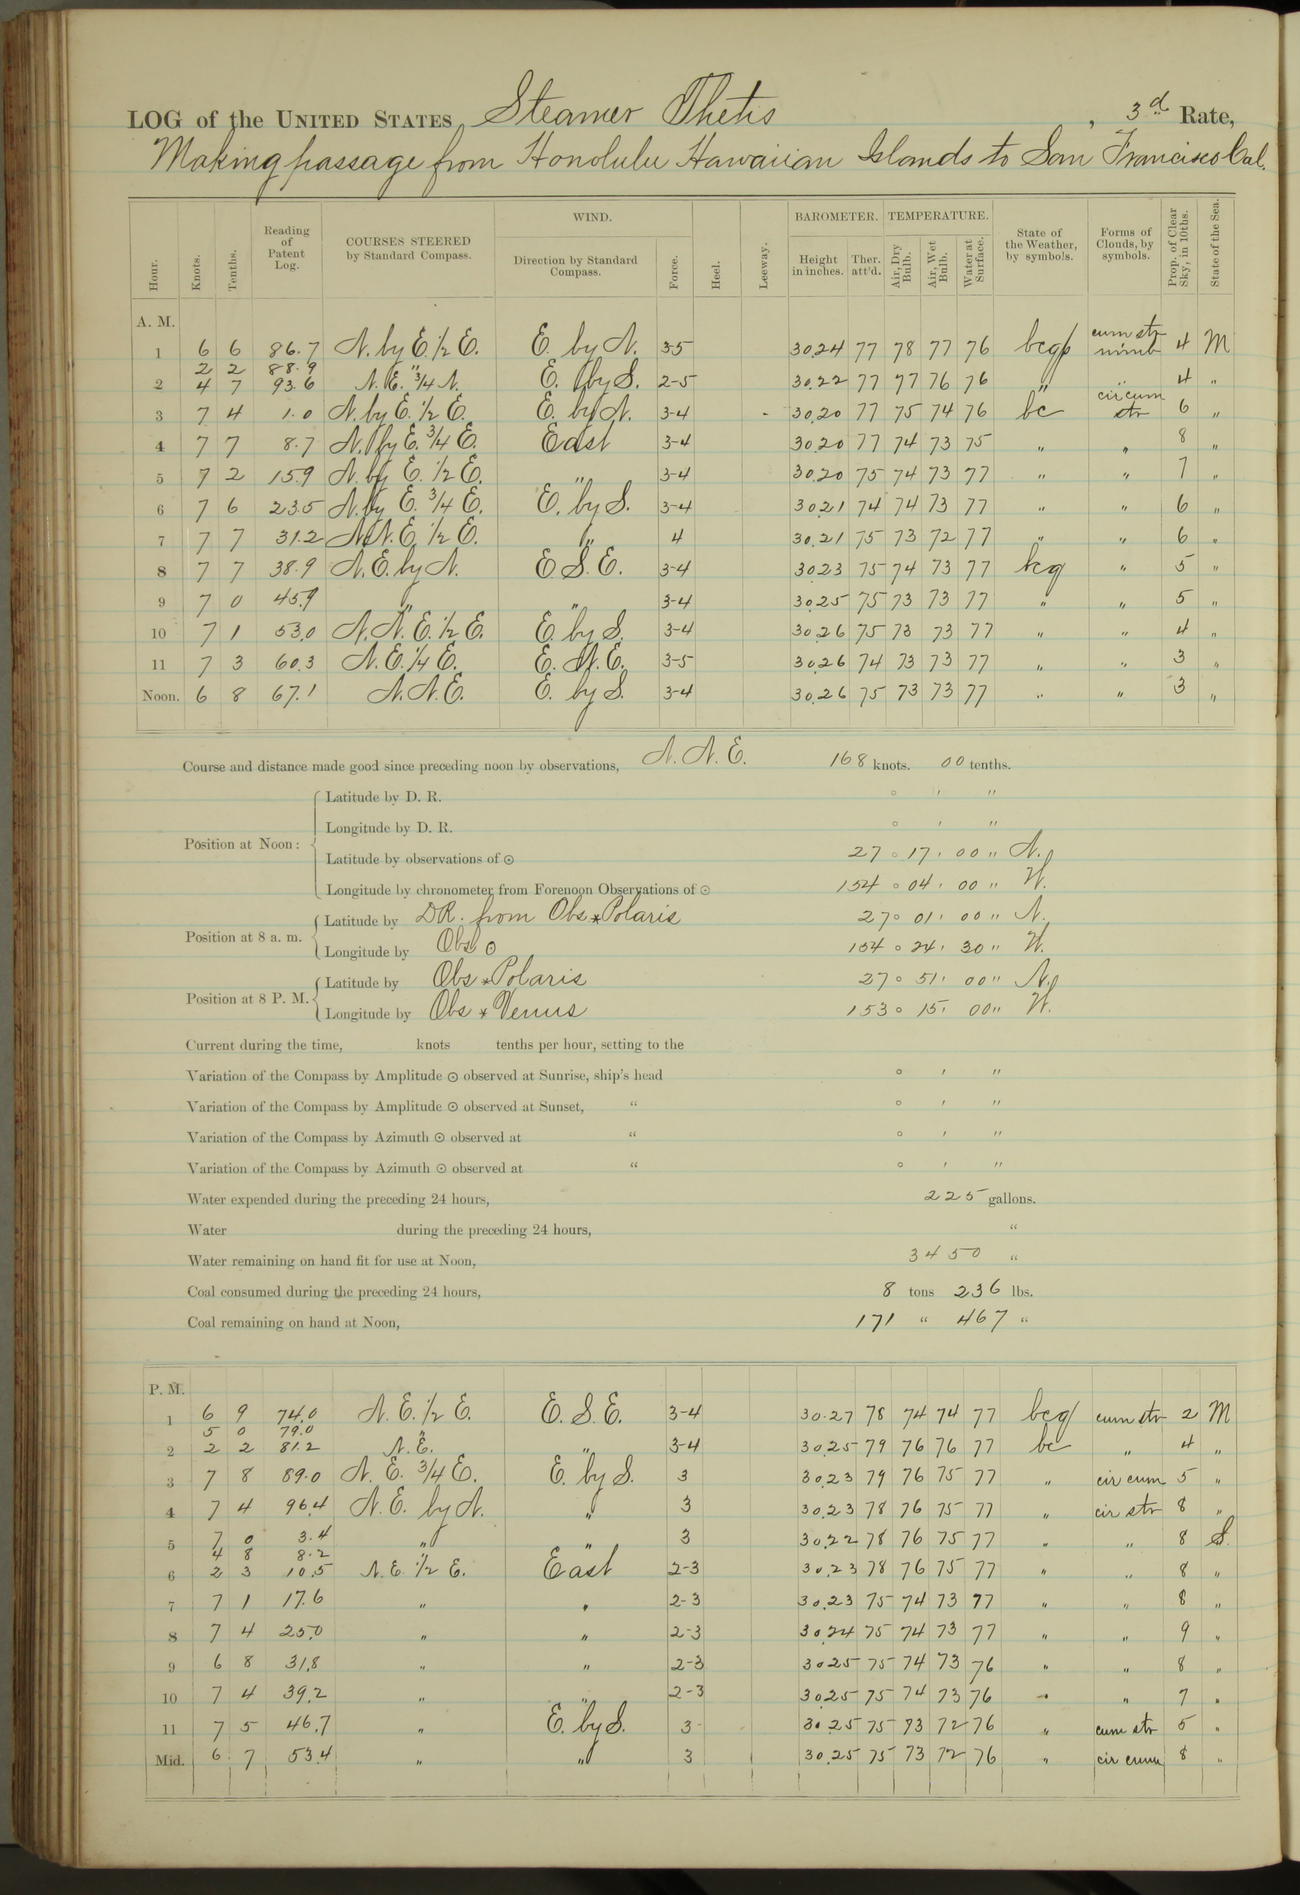 LOG of the UNITED STATES Steamer Thetis , 3d Rate,
Making passage from Honolulu Hawaiian Islands to San Francisco Cal.
WIND. BAROMETER. TEMPERATURE.
Hour. Knots. Tenths. Reading of Patent Log. COURSES STEERED by Standard Compass. Direction by Standard Compass. Force. Heel. Leeway. Height in inches. Ther. att'd. Air, Dry Bulb. Air, Wet Bulb. Water at Surface. State of the Weather, by symbols. Forms of Clouds, by symbols. Prop. of Clear Sky, in 10ths. State of the Sea.
A. M.
1 6 6 86.7 N. by E. 1/2 E. E. by N. 3-5 30.24 77 78 77 76 bcqp cum str nimb 4 M
2 2 88.9 "
2 4 7 93.6 N. E. 3/4 N. E. by S. 2-5 30.22 77 77 76 76 " " 4 "
3 7 4 1.0 N. by E. 1/2 E. E. by N. 3-4 30.20 77 75 74 76 bc cir cum str 6 "
4 7 7 8.7 N. by E. 3/4 E. East 3-4 30.20 77 74 73 75 " " 8 "
5 7 2 15.9 N. by E. 1/2 E. " 3-4 30.20 75 74 73 77 " " 7 "
6 7 6 23.5 N. by E. 3/4 E. E. by S. 3-4 30.21 74 74 73 77 " " 6 "
7 7 7 31.2 N.N.E. 1/2 E. " 4 30.21 75 73 72 77 " " 6 "
8 7 7 38.9 N.E. by N. E.S.E. 3-4 30.23 75 74 73 77 bcq " 5 "
9 7 0 45.9 " " 3-4 30.25 75 73 73 77 " " 5 "
10 7 1 53.0 N.N.E. 1/2 E. E. by S. 3-4 30.26 75 73 73 77 " " 4 "
11 7 3 60.3 N.E. 1/4 E. E.N.E. 3-5 30.26 74 73 73 77 " " 3 "
Noon. 6 8 67.1 N.N.E. E. by S. 3-4 30.26 75 73 73 77 " " 3 "
Course and distance made good since preceding noon by observations, N.N.E. 168 knots. 00 tenths.
Position at Noon:
Latitude by D. R. ° ' "
Longitude by D. R. ° ' "
Latitude by observations of ☉ 27 ° 17 ' 00 " N.
Longitude by chronometer from Forenoon Observations of ☉ 154 ° 04 ' 00 " W.
Position at 8 a. m.
Latitude by DR. from Obs * Polaris 27 ° 01 ' 00 " N.
Longitude by Obs ☉ 154 ° 24 ' 30 " W.
Position at 8 P. M.
Latitude by Obs * Polaris 27 ° 51 ' 00 " N.
Longitude by Obs * Venus 153 ° 15 ' 00 " W.
Current during the time, knots tenths per hour, setting to the
Variation of the Compass by Amplitude ☉ observed at Sunrise, ship's head ° ' "
Variation of the Compass by Amplitude ☉ observed at Sunset, " ° ' "
Variation of the Compass by Azimuth ☉ observed at " ° ' "
Variation of the Compass by Azimuth ☉ observed at " ° ' "
Water expended during the preceding 24 hours, 225 gallons.
Water during the preceding 24 hours, "
Water remaining on hand fit for use at Noon, 3450 "
Coal consumed during the preceding 24 hours, 8 tons 236 lbs.
Coal remaining on hand at Noon, 171 " 467 "
P. M.
1 6 9 74.0 N.E. 1/2 E. E.S.E. 3-4 30.27 78 74 74 77 bcq cum str 2 M
5 0 79.0 "
2 2 2 81.2 N.E. " 3-4 30.25 79 76 76 77 bc " 4 "
3 7 8 89.0 N.E. 3/4 E. E. by S. 3 30.23 79 76 75 77 " cir cum 5 "
4 7 4 96.4 N.E. by N. " 3 30.23 78 76 75 77 " cir str 8 "
5 7 0 3.4 " " 3 30.22 78 76 75 77 " " 8 S.
4 8 8.2
6 2 3 10.5 N.E. 1/2 E. East 2-3 30.23 78 76 75 77 " " 8 "
7 7 1 17.6 " " 2-3 30.23 75 74 73 77 " " 8 "
8 7 4 25.0 " " 2-3 30.24 75 74 73 77 " " 9 "
9 6 8 31.8 " " 2-3 30.25 75 74 73 76 " " 8 "
10 7 4 39.2 " " 2-3 30.25 75 74 73 76 " " 7 "
11 7 5 46.7 " E. by S. 3 30.25 75 73 72 76 " cum str 5 "
Mid. 6 7 53.4 " " 3 30.25 75 73 72 76 " cir cum 8 "